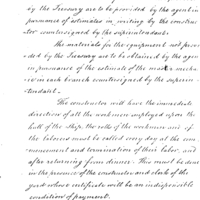 by the Treasury are to be provided by the agent in
pursuance of estimates in writing by the construc-
tor countersigned by the superintendant.
The materials for the equipment not provi-
ded by the Treasury are to be obtained by the agent
in pursuance of the estimate of the master mecha-
nic in each branch countersigned by the superin-
tendant.
The constructor will have the immediate
direction of all the workmen employed upon the
hull of the ship. the rolls of the workmen and of
the laborers must be called every day at the com-
mencement and termination of their labor, and
after returning from dinner. This must be done
in the presence of the constructor and clerk of the
yard whose certificate will be an indispensible
condition of payment.